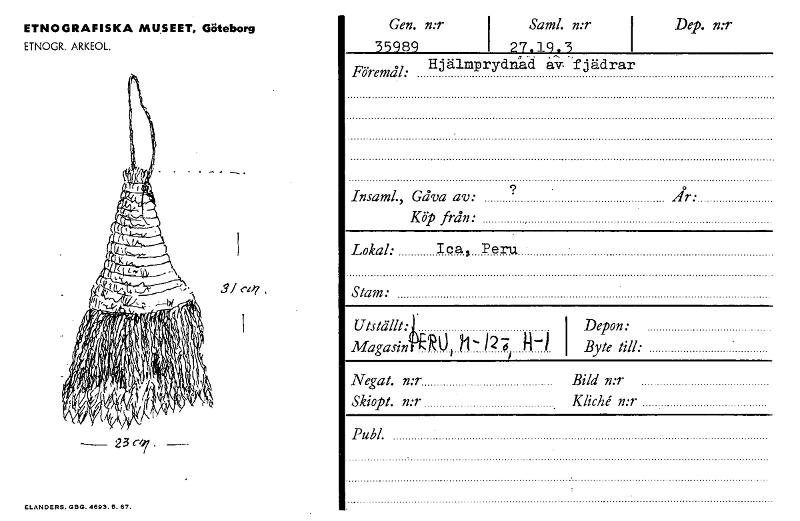 ETNOGRAFISKA MUSEET, Göteborg
ETNOGR. ARKEOL.
31 cm.
23 cm.
ELANDERS, GBG. 4693. 6. 67.
Gen. n:r Saml. n:r Dep. n:r
35989 27.19.3
Föremål: Hjälmprydnad av fjädrar
Insaml., Gåva av: ? År:
Köp från:
Lokal: Ica, Peru
Stam:
Utställt: Depon:
Magasin PERU, M-12 H-1 Byte till:
Negat. n:r Bild n:r
Skiopt. n:r Kliché n:r
Publ.